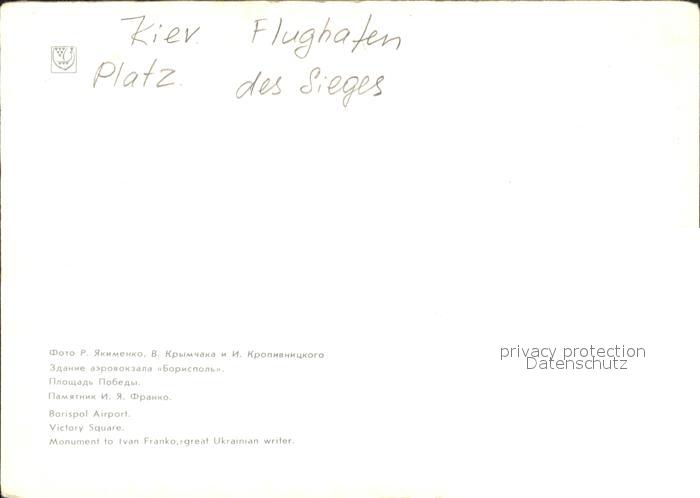 Kiev. Flughafen
Platz. des Sieges
Фото Р. Якименко, В. Крымчака и И. Кропивницкого
Здание аэровокзала «Борисполь».
Площадь Победы.
Памятник И. Я. Франко.
Borispol Airport.
Victory Square.
Monument to Ivan Franko, great Ukrainian writer.
privacy protection
Datenschutz